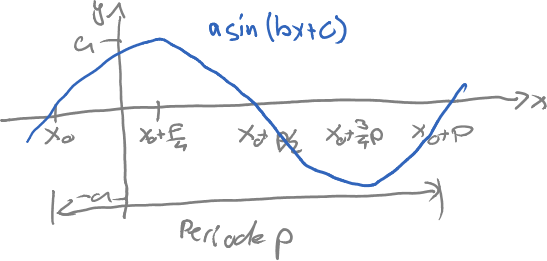 y
a sin (bx+c)
a
x
x₀
x₀+p/4
x₀+p/2
x₀+3/4p
x₀+p
-a
Periode p